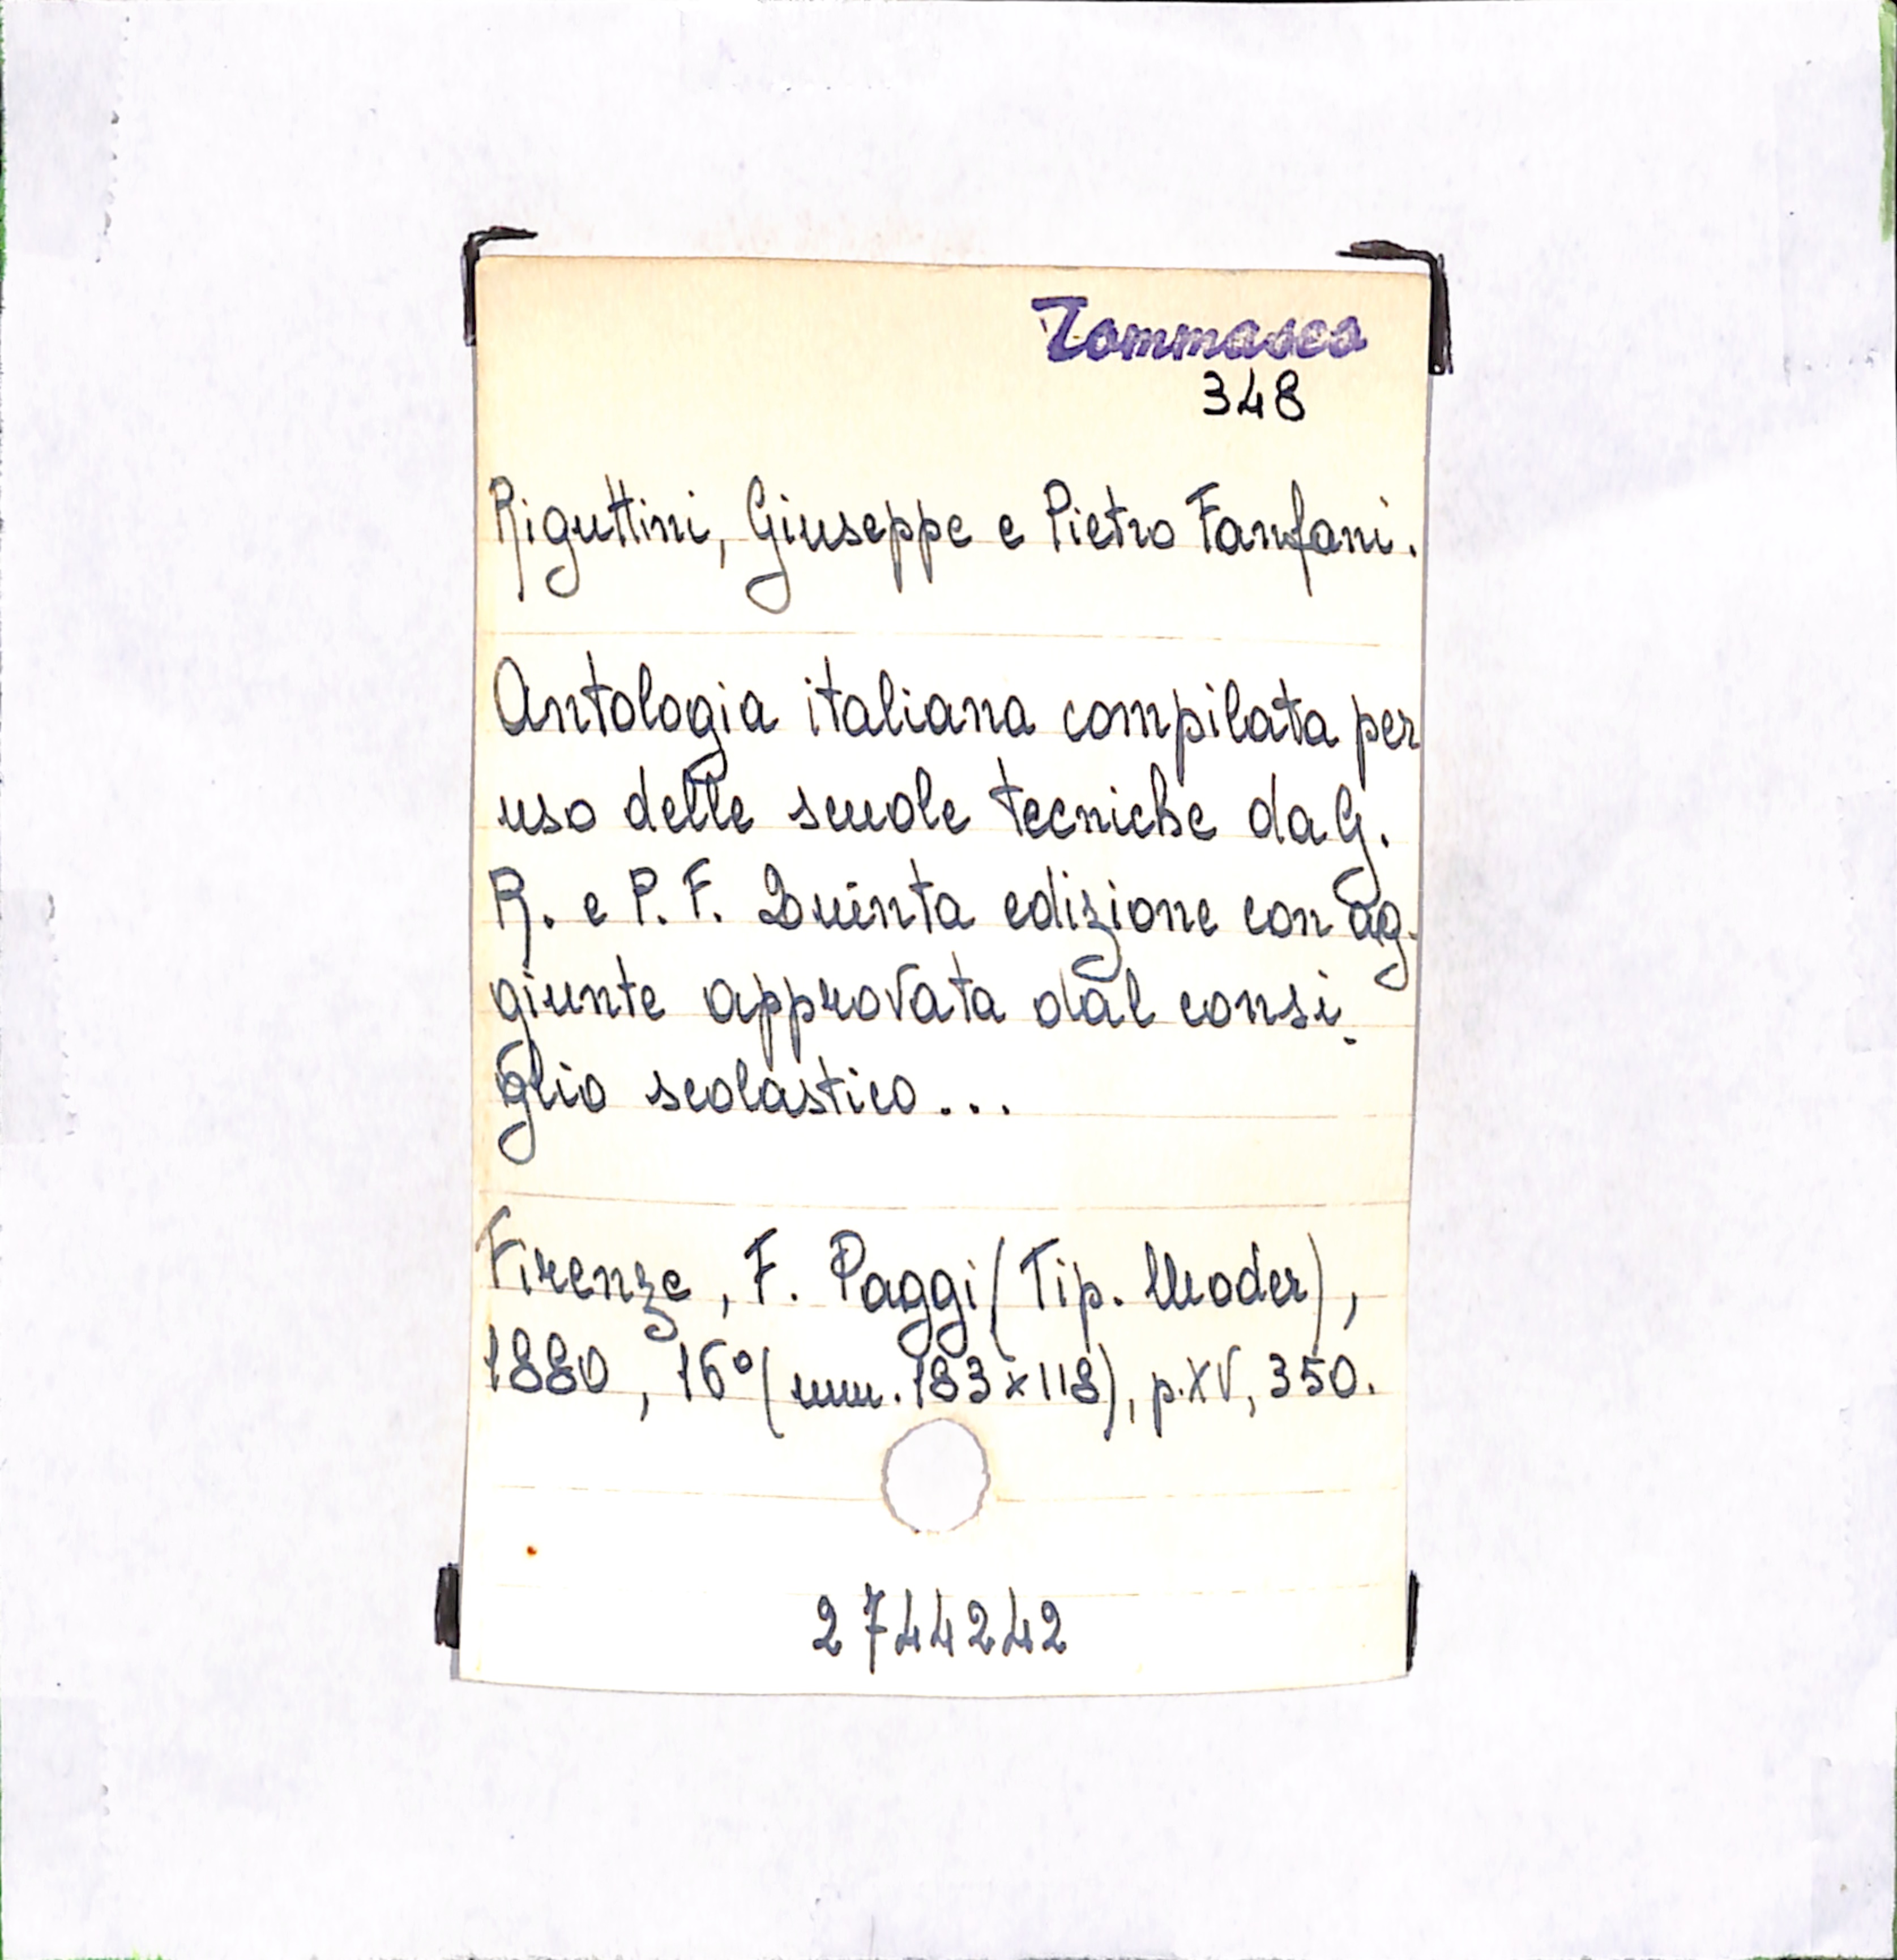 Tommaseo
348
Riguttini, Giuseppe e Pietro Fanfani.
Antologia italiana compilata per
uso delle scuole tecniche da G.
R. e P. F. Quinta edizione con ag-
giunte approvata dal consi-
glio scolastico...
Firenze, F. Paggi (Tip. Moder),
1880, 16° (mm. 183x118), p. XV, 350.
2744242